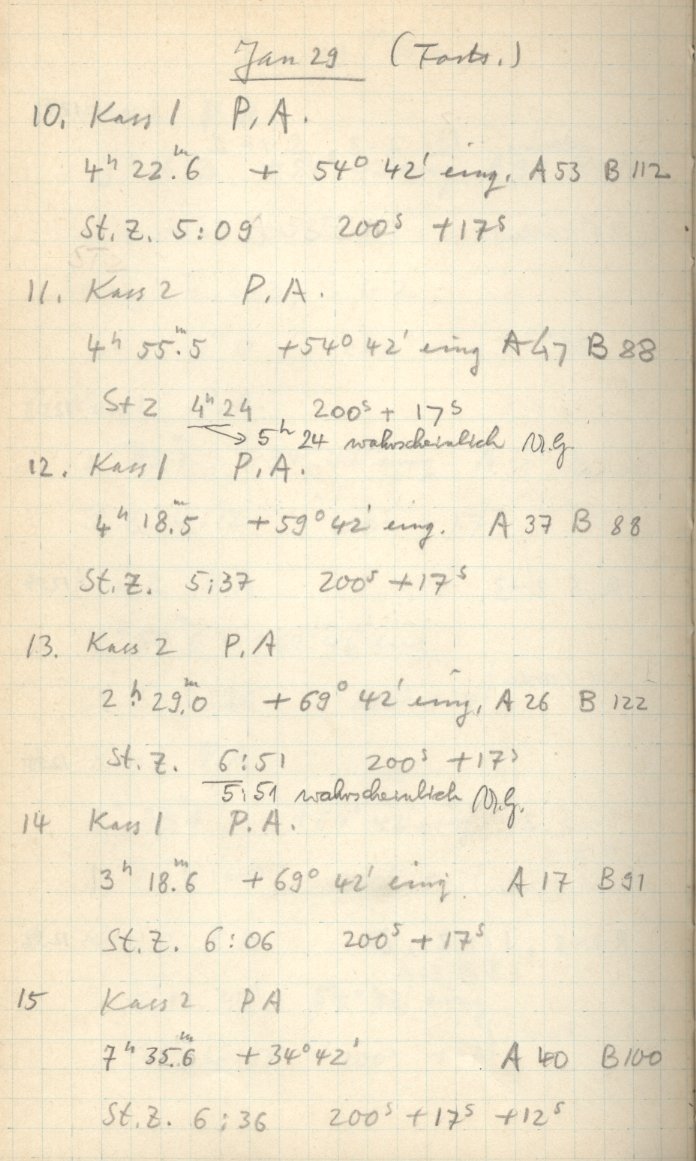 Jan 29 (Forts.)
10. Kass 1 P.A.
4ʰ 22ᵐ.6 + 54° 42' eing. A 53 B 112
St.Z. 5:09 200ˢ +17ˢ
11. Kass 2 P.A.
4ʰ 55ᵐ.5 +54° 42' eing A 47 B 88
St Z 4ʰ 24 200ˢ + 17ˢ
→ 5ʰ 24 wahrscheinlich
12. Kass 1 P.A.
4ʰ 18ᵐ.5 +59° 42' eing. A 37 B 88
St.Z. 5:37 200ˢ +17ˢ
13. Kass 2 P.A
2ʰ 29ᵐ.0 +69° 42' eing. A 26 B 122
St.Z. 6:51 200ˢ +17ˢ
5:51 wahrscheinlich
14 Kass 1 P.A.
3ʰ 18ᵐ.6 +69° 42' eing A 17 B 91
St.Z. 6:06 200ˢ +17ˢ
15 Kass 2 PA
7ʰ 35ᵐ.6 +34° 42' A 40 B 100
St.Z. 6:36 200ˢ +17ˢ +12ˢ